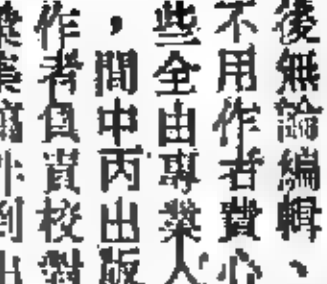 後無論編輯、
不用作者費心
些全由專業人
，間中丙出版
作者負責校對